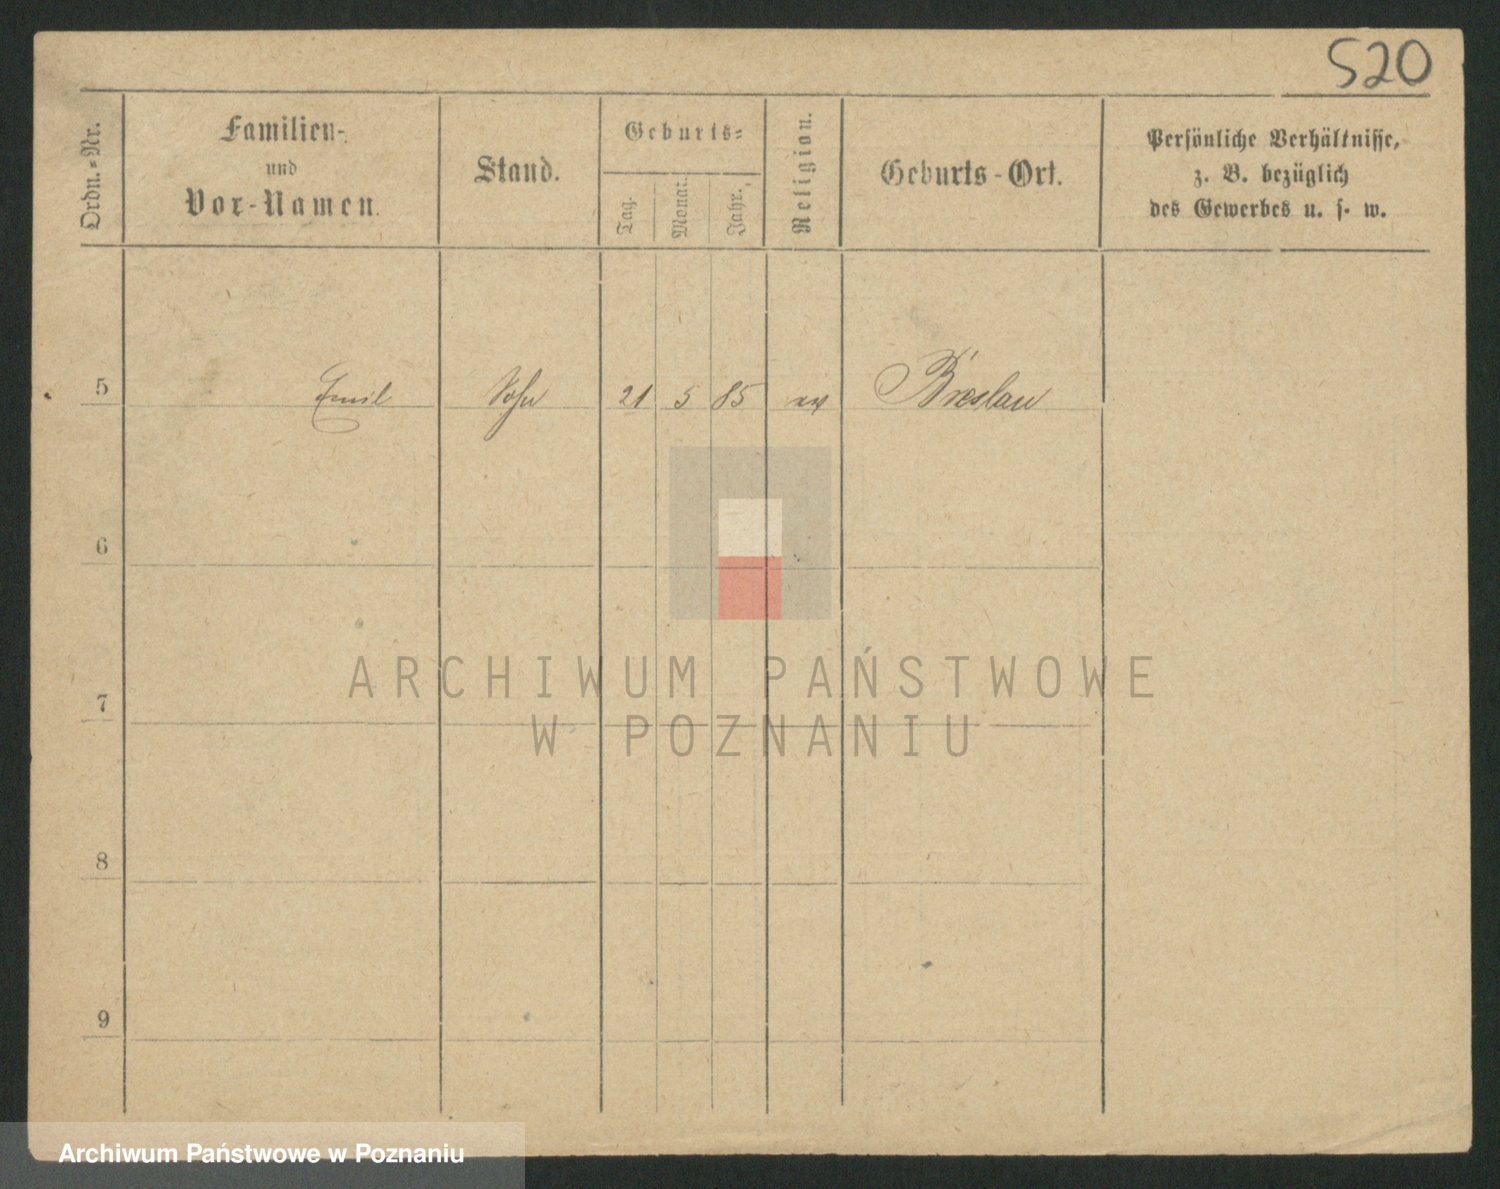 520
Ordn.-Nr.
Familien-
und
Vor-Namen.
Stand.
Geburts-
Tag.
Monat.
Jahr.
Religion.
Geburts-Ort.
Persönliche Verhältnisse,
z. B. bezüglich
des Gewerbes u. s. w.
5 Emil Sohn 21 5 85 ev Breslau
6
7
8
9
ARCHIWUM PAŃSTWOWE
W POZNANIU
Archiwum Państwowe w Poznaniu